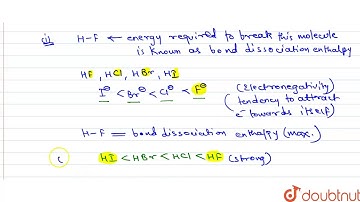 (ii) H-F ← energy required to break this molecule
is known as bond dissociation enthalpy
HF, HCl, HBr, HI
I⊖ < Br⊖ < Cl⊖ < F⊖ (Electronegativity)
(tendency to attract
e⁻ towards itself)
H-F = bond dissociation enthalpy (max.)
( HI < HBr < HCl < HF (strong)
doubtnut